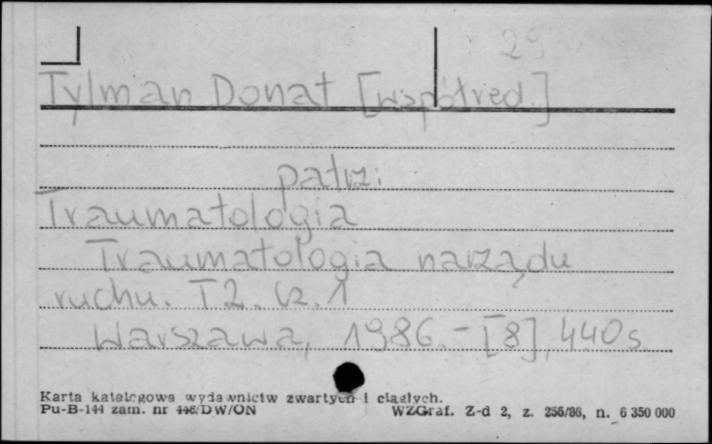 29
Tylman Donat [współred.]
patrz:
Traumatologia
Traumatologia narządu
ruchu. T 2. Cz. 1
Warszawa, 1986. - [8], 440 s.
Karta katalogowa wydawnictw zwartych i ciągłych.
Pu-B-144 zam. nr DW/ON WZGraf. Z-d 2, z. 255/86, n. 6 350 000